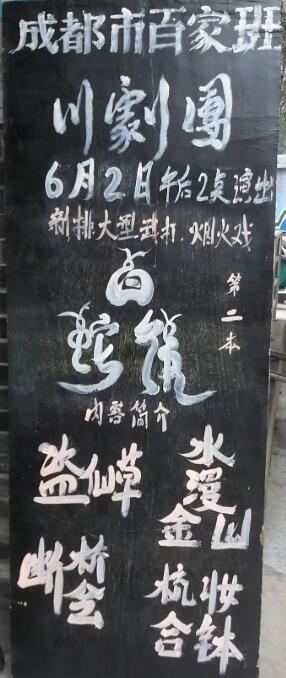 成都市百家班
川劇團
6月2日午后2点演出
新排大型武打.烟火戏
白
蛇傳
第二本
内容简介
盗仙草
水漫
金山
断桥会
梳妆
合钵